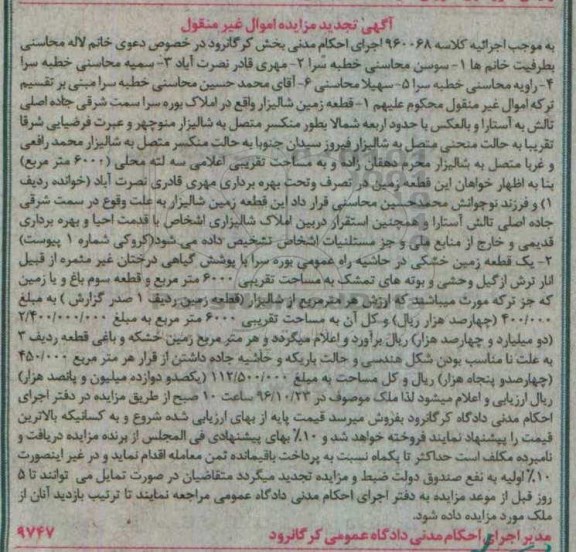 آگهی تجدید مزایده اموال غیر منقول
به موجب اجرائیه کلاسه ۹۶۰۰۶۸ اجرای احکام مدنی بخش کرگانرود در خصوص دعوی خانم لاله محاسنی
بطرفیت خانم ها ۱- سوسن محاسنی خطبه سرا ۲- مهری قادر نصرت آباد ۳- سمیه محاسنی خطبه سرا
۴- راویه محاسنی خطبه سرا ۵- سهیلا محاسنی ۶- آقای محمد حسین محاسنی خطبه سرا مبنی بر تقسیم
ترکه اموال غیر منقول محکوم علیهم ۱- قطعه زمین شالیزار واقع در املاک بوره سرا سمت شرقی جاده اصلی
تالش به آستارا و بالعکس با حدود اربعه شمالا بطور منکسر متصل به شالیزار منوچهر و عبرت فرضیایی شرقا
تقریبا به حالت منحنی متصل به شالیزار فیروز سیدان جنوبا به حالت منکسر متصل به شالیزار محمد رافعی
و غربا متصل به شالیزار محرم دهقان زاده و به مساحت تقریبی اعلامی سه لته محلی (۶۰۰۰ متر مربع)
بنا به اظهار خواهان این قطعه زمین در تصرف وتحت بهره برداری مهری قادری نصرت آباد (خوانده ردیف
۱) و فرزند نوجوانش محمدحسین محاسنی قرار داد این قطعه زمین شالیزار به علت وقوع در سمت شرقی
جاده اصلی تالش آستارا و همچنین استقرار دربین املاک شالیزاری اشخاص با قدمت احیا و بهره برداری
قدیمی و خارج از منابع ملی و جز مستثنیات اشخاص تشخیص داده می شود(کروکی شماره ۱ پیوست)
۲- یک قطعه زمین خشکی در حاشیه راه عمومی بوره سرا با پوشش گیاهی درختان غیر مثمره از قبیل
انار ترش ازگیل وحشی و بوته های تمشک به مساحت تقریبی ۶۰۰۰ متر مربع و قطعه سوم باغ و یا زمین
که جز ترکه مورث میباشید که ارزش هر مترمربع از شالیزار (قطعه زمین ردیف ۱ صدر گزارش ) به مبلغ
۴۰۰/۰۰۰ (چهارصد هزار ریال) و کل آن به مساحت تقریبی ۶۰۰۰ متر مربع به مبلغ ۲/۴۰۰/۰۰۰/۰۰۰
(دو میلیارد و چهارصد هزار) ریال برآورد و اعلام میگردد و هر متر مربع زمین خشکه و باغی قطعه ردیف ۳
به علت نا مناسب بودن شکل هندسی و حالت باریکه و حاشیه جاده داشتن از قرار هر متر مربع ۴۵۰/۰۰۰
(چهارصدو پنجاه هزار) ریال و کل مساحت به مبلغ ۱۱۲/۵۰۰/۰۰۰ (یکصدو دوازده میلیون و پانصد هزار)
ریال ارزیابی و اعلام میشود لذا ملک موصوف در ۹۶/۱۰/۲۳ ساعت ۱۰ صبح از طریق مزایده در دفتر اجرای
احکام مدنی دادگاه کرگانرود بفروش میرسد قیمت پایه از بهای ارزیابی شده شروع و به کسانیکه بالاترین
قیمت را پیشنهاد نمایند فروخته خواهد شد و ۱۰٪ بهای پیشنهادی فی المجلس از برنده مزایده دریافت و
نامبرده مکلف است حداکثر تا یکماه نسبت به پرداخت باقیمانده ثمن معامله اقدام نماید و در غیر اینصورت
۱۰٪ اولیه به نفع صندوق دولت ضبط و مزایده تجدید میگردد متقاضیان در صورت تمایل می توانند تا ۵
روز قبل از موعد مزایده به دفتر اجرای احکام مدنی دادگاه عمومی مراجعه نمایند تا ترتیب بازدید آنان از
ملک مورد مزایده داده شود.
مدیر اجرای احکام مدنی دادگاه عمومی کرگانرود ۹۷۴۷